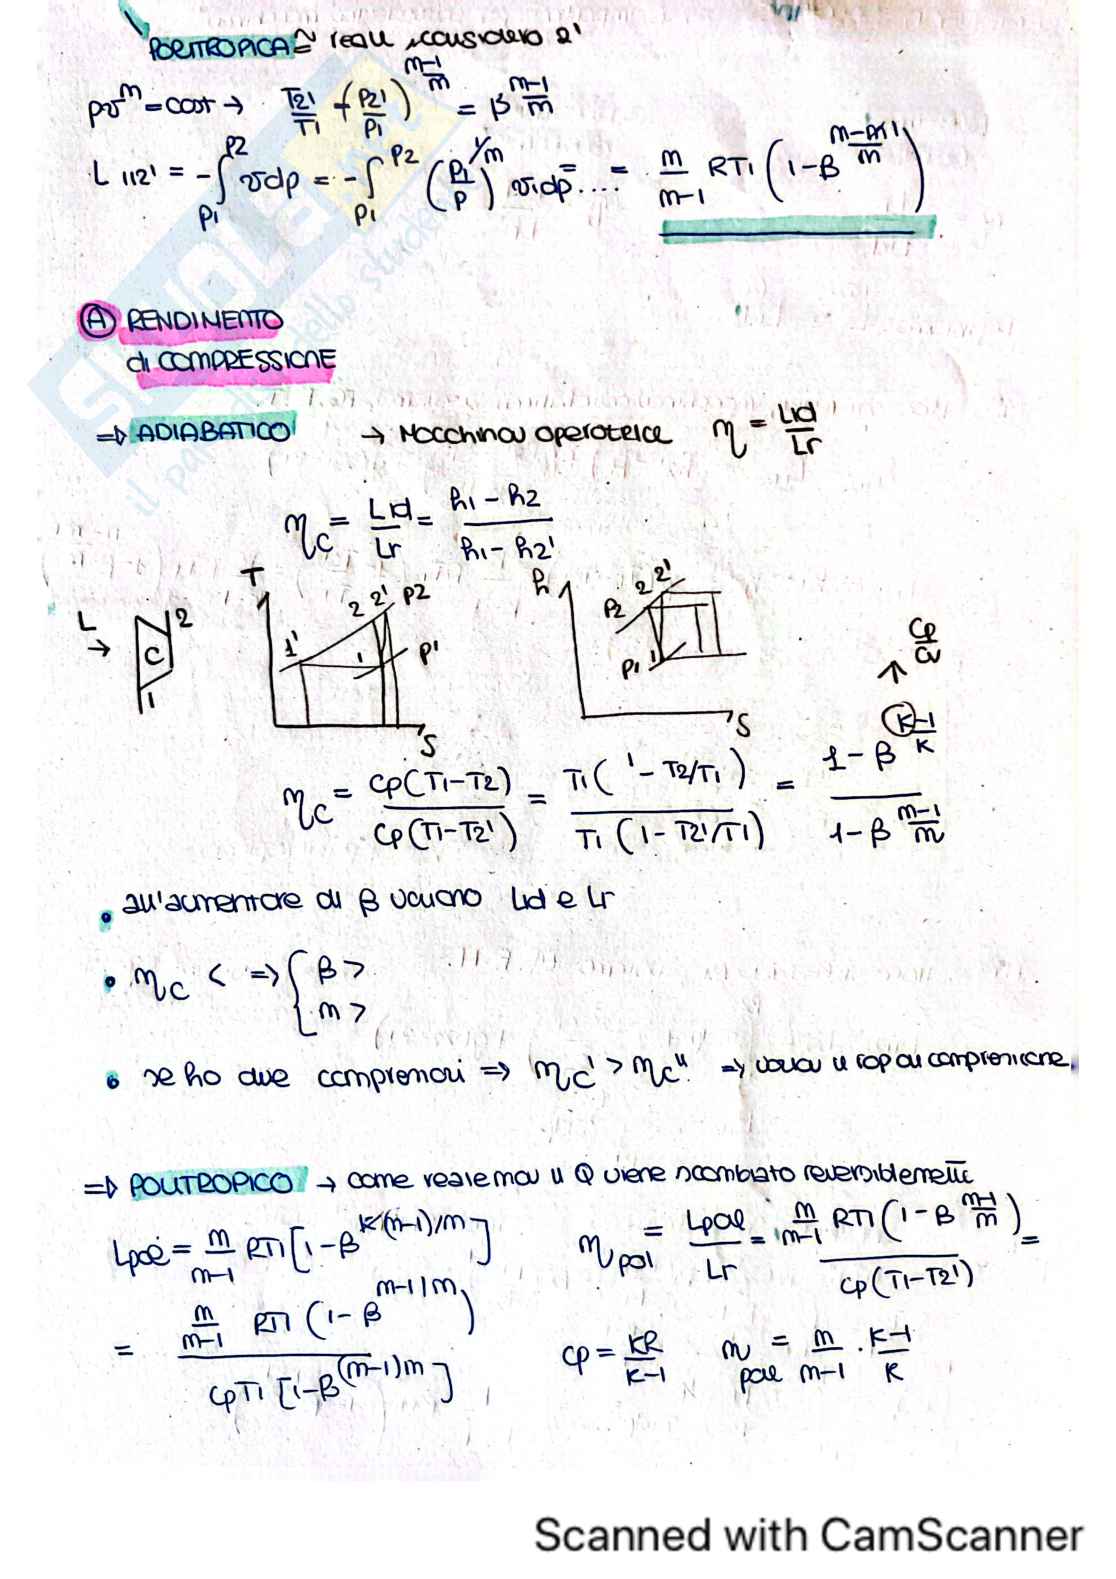 POLITROPICA ≃ reale, considero 2'
pv^m = cost → T2'/T1 = (P2'/P1)^(m-1/m) = β^(m-1/m)
L 112' = -∫_{P1}^{P2} vdp = -∫_{P1}^{P2} (P1/P)^(1/m) v1dp = .... = m/(m-1) RT1 (1-β^(m-1/m))
Ⓐ RENDIMENTO
di COMPRESSIONE
⇒ ADIABATICO → Macchina operatrice η = Lid/Lr
ηc = Lid/Lr = (h1-h2)/(h1-h2')
T 2 2' P2 1' 1 P' S
h 2 2' P2 P1 1 S
L → C 2 1
Cp/Cv
ηc = Cp(T1-T2)/Cp(T1-T2') = T1(1-T2/T1)/T1(1-T2'/T1) = (1-β^(K-1/K))/(1-β^(m-1/m))
• all'aumentare di β variano Lid e Lr
• ηc < ⇒ { β >
m >
• se ho due compressori ⇒ ηc' > ηc'' ⇒ varia il rap di compressione
⇒ POLITROPICO → come reale ma il Q viene scambiato reversibilmente
Lpol = m/(m-1) RT1 [1-β^(K(m-1)/m)]
ηpol = Lpol/Lr = m/(m-1) RT1 (1-β^(m-1/m)) / Cp(T1-T2') =
= m/(m-1) RT1 (1-β^(m-1/m)) / CpT1 [1-β^((m-1)m)]
cp = KR/(K-1) ηpol = m/(m-1) · (K-1)/K
Scanned with CamScanner